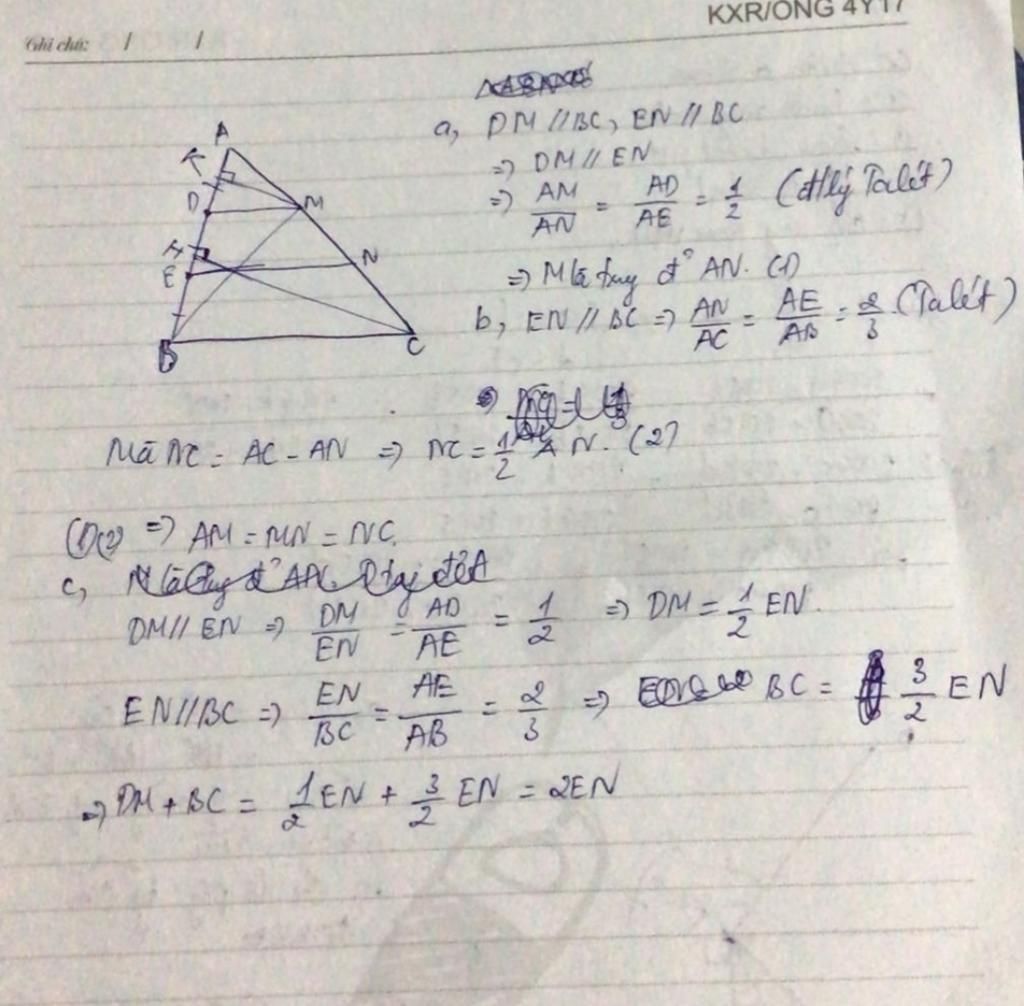 KXR/ONG 4Y17
Ghi chú: / /
a, DM // BC, EN // BC
=> DM // EN
=> AM/AN = AD/AE = 1/2 (đlý Talét)
=> M là tung đ° AN. (1)
b, EN // BC => AN/AC = AE/AB = 2/3 (Talét)
Mà NC = AC - AN => NC = 1/2 AN. (2)
(1)(2) => AM = MN = NC.
c,
DM // EN => DM/EN = AD/AE = 1/2 => DM = 1/2 EN.
EN // BC => EN/BC = AE/AB = 2/3 => BC = 3/2 EN
=> DM + BC = 1/2 EN + 3/2 EN = 2EN
A
K
D
M
H
E
N
B
C